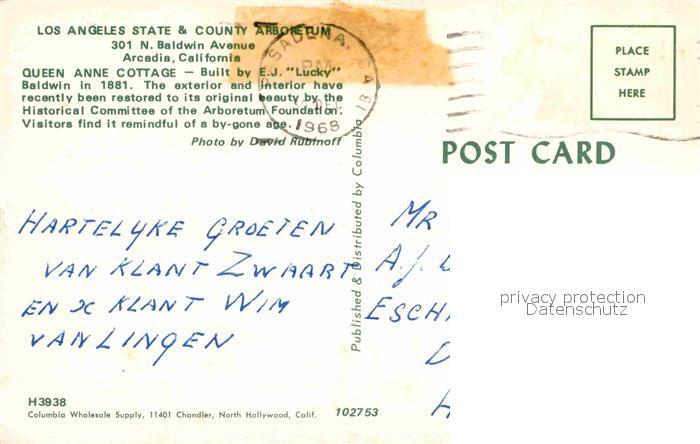 LOS ANGELES STATE & COUNTY ARBORETUM
301 N. Baldwin Avenue
Arcadia, California
QUEEN ANNE COTTAGE — Built by E.J. "Lucky"
Baldwin in 1881. The exterior and interior have
recently been restored to its original beauty by the
Historical Committee of the Arboretum Foundation.
Visitors find it remindful of a by-gone age.
Photo by David Rubinoff
PASADENA, CA
PM
1968
PLACE
STAMP
HERE
POST CARD
HARTELYKE GROETEN
VAN KLANT ZWAART
EN X KLANT WIM
VAN LINGEN
Published & Distributed by Columbia
MR
A.J.
ESCH
D
H
privacy protection
Datenschutz
H3938
Columbia Wholesale Supply, 11401 Chandler, North Hollywood, Calif.
102753